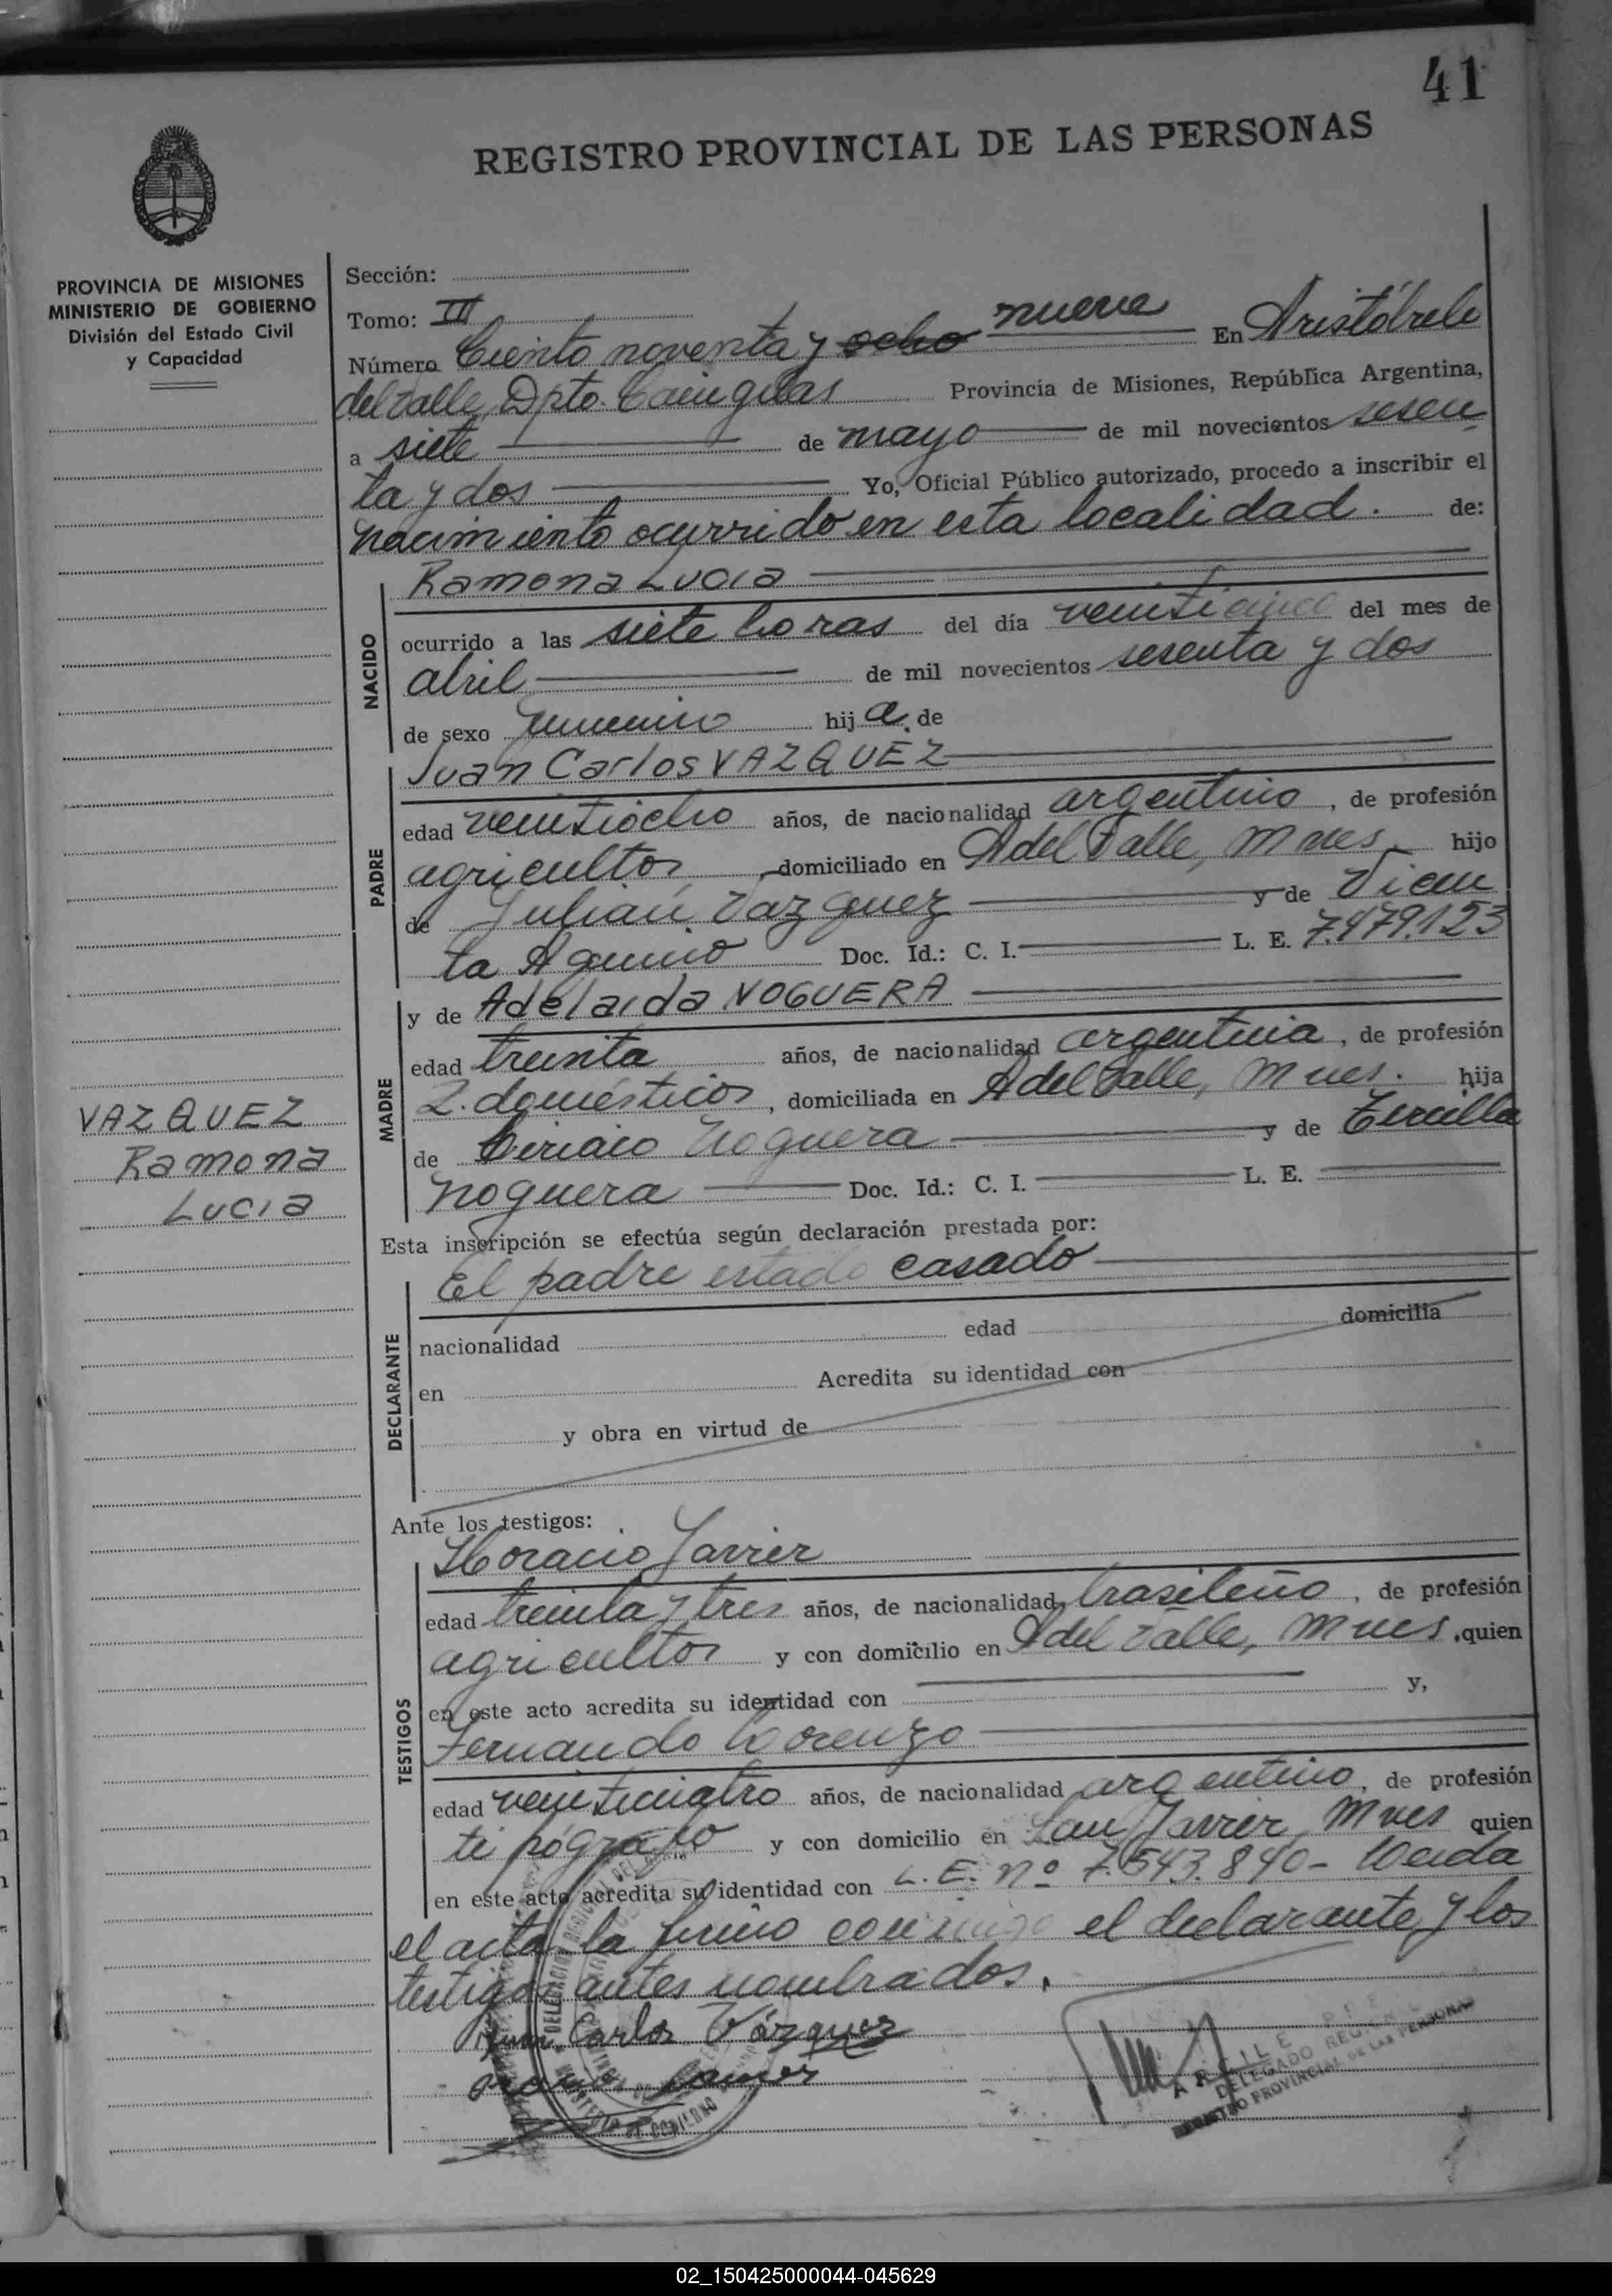 41
REGISTRO PROVINCIAL DE LAS PERSONAS
PROVINCIA DE MISIONES
MINISTERIO DE GOBIERNO
División del Estado Civil
y Capacidad
Sección:
Tomo: III
Número Ciento noventa y ocho nueve En Aristóbulo
del Valle, Dpto. Cainguás Provincia de Misiones, República Argentina,
a siete de mayo de mil novecientos sesen
ta y dos Yo, Oficial Público autorizado, procedo a inscribir el
nacimiento ocurrido en esta localidad. de:
NACIDO
Ramona Lucia
ocurrido a las siete horas del día veinticinco del mes de
abril de mil novecientos sesenta y dos
de sexo femenino hij a de
PADRE
Juan Carlos VAZQUEZ
edad veintiocho años, de nacionalidad argentino, de profesión
agricultor domiciliado en A del Valle, Mnes hijo
de Julián Vázquez y de Vicen
ta Aquino Doc. Id.: C. I. L. E. 7.479.153
MADRE
y de Adelaida NOGUERA
edad treinta años, de nacionalidad argentina, de profesión
Q. domésticos, domiciliada en A del Valle, Mnes. hija
de Ciriaco Noguera y de
Noguera Doc. Id.: C. I. L. E.
VAZQUEZ
Ramona
Lucia
Esta inscripción se efectúa según declaración prestada por:
DECLARANTE
El padre estado casado
nacionalidad edad domicilia
en Acredita su identidad con
y obra en virtud de
Ante los testigos:
TESTIGOS
Horacio Javier
edad treinta y tres años, de nacionalidad brasileño, de profesión
agricultor y con domicilio en A del Valle, Mnes. quien
en este acto acredita su identidad con y,
Fernando Lorenzo
edad veinticuatro años, de nacionalidad argentino, de profesión
tipógrafo y con domicilio en San Javier Mnes quien
en este acto acredita su identidad con L. E. nº 7.543.840- Leida
el acta la firmo conmigo el declarante y los
testigos antes nombrados.
Juan Carlos Vázquez
DELEGADO REGIONAL
REGISTRO PROVINCIAL DE LAS PERSONAS
02_150425000044-045629